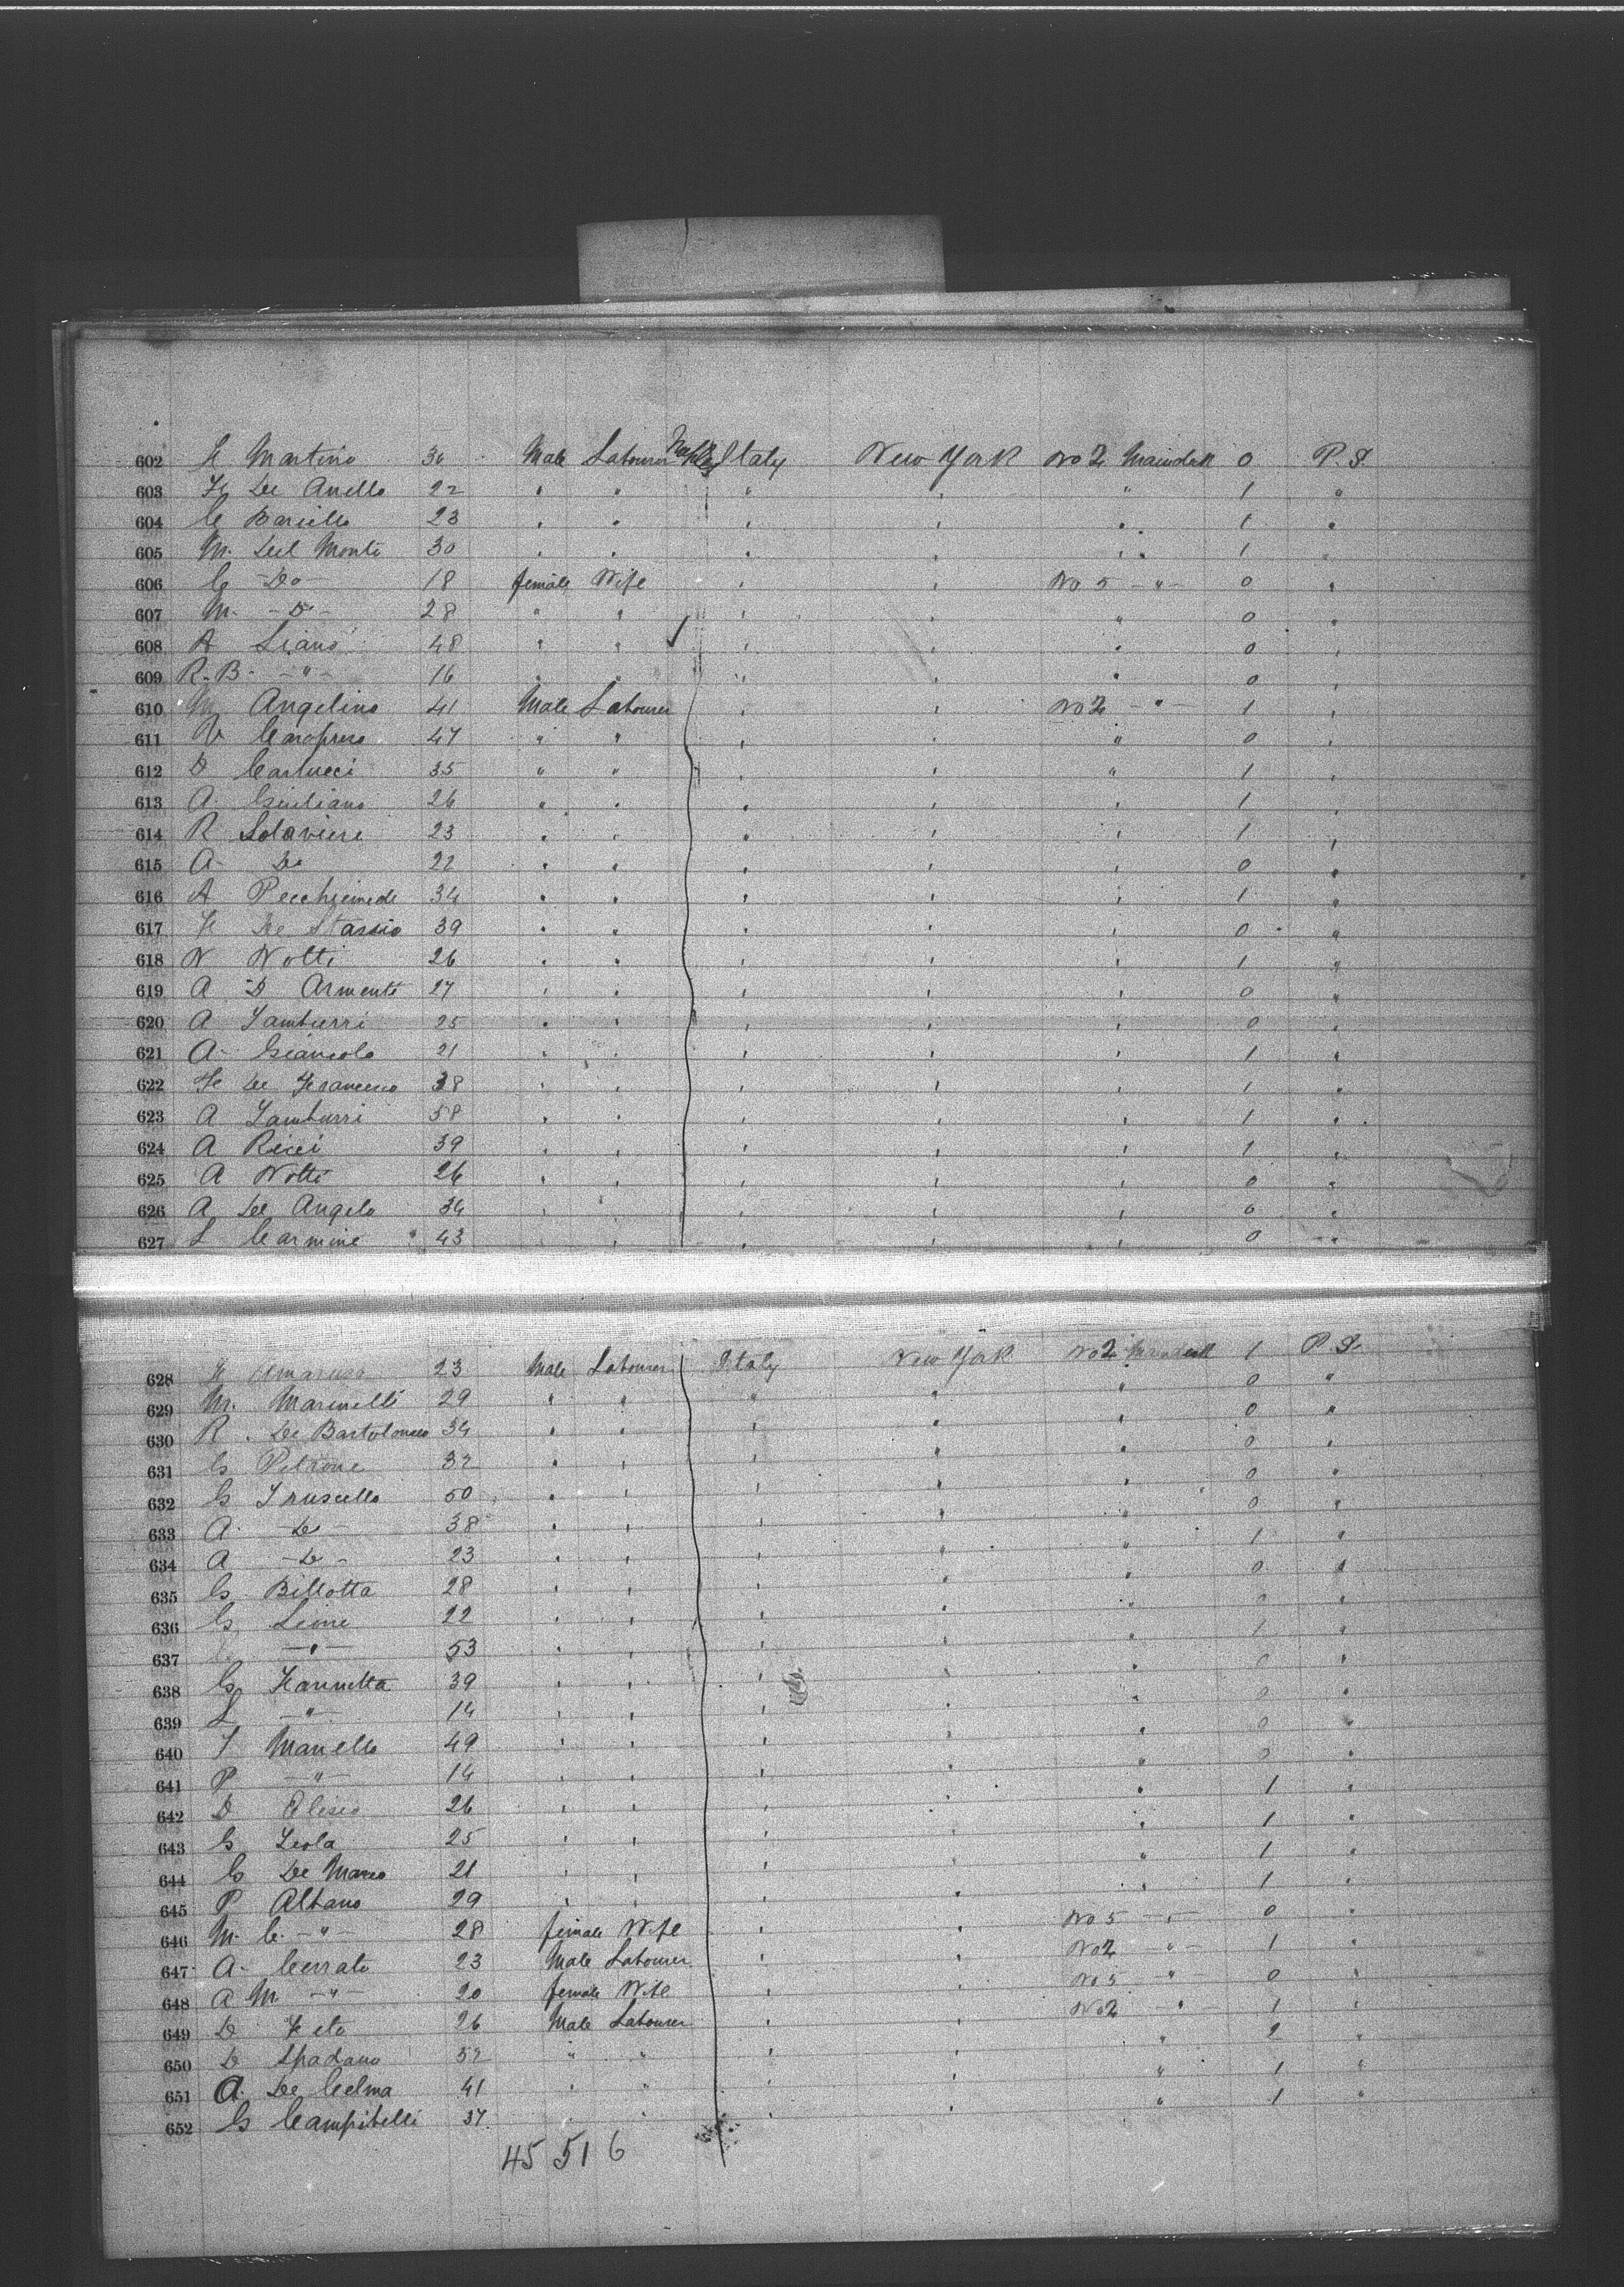 602 F Martino 36 Male Labourer Naples Italy New York No 2 Maindeck 0 P.S.
603 F De Anello 22 " " " " " 1 "
604 C Bariello 23 " " " " " 1 "
605 M. Del Monte 30 " " " " " 1 "
606 C -Do- 18 female Wife " " No 5 -"- 0 "
607 M. -Do- 28 " " " " " 0 "
608 A Liano 48 " " " " " 0 "
609 R.B. -"- 16 " " " " " 0 "
610 M Angelino 41 Male Labourer " " No 2 -"- 1 "
611 V 47 " " " " " 0 "
612 D Carlucci 35 " " " " " 1 "
613 A. Giuliano 26 " " " " " 1 "
614 R 23 " " " " " 1 "
615 A- Do 22 " " " " " 0 "
616 A 34 " " " " " 1 "
617 F De Stassio 39 " " " " " 0 "
618 N Notti 26 " " " " " 1 "
619 A D Armente 27 " " " " " 0 "
620 A Tamburri 25 " " " " " 0 "
621 A- Giancola 21 " " " " " 1 "
622 F De Francesco 38 " " " " " 1 "
623 A Tamburri 58 " " " " " 1 "
624 A Ricci 39 " " " " " 1 "
625 A Notti 26 " " " " " 0 "
626 A Del Angelo 34 " " " " " 0 "
627 L Carmine 43 " " " " " 0 "
628 F Amaruso 23 Male Labourer Italy New York No 2 Maindeck 1 P.S.
629 M. Marinelli 29 " " " " " 0 "
630 R. De Bartolomeo 34 " " " " " 0 "
631 G Petrone 32 " " " " " 0 "
632 G Truscello 50 " " " " " 0 "
633 A. -Do- 38 " " " " " 0 "
634 A -Do- 23 " " " " " 1 "
635 G Billotta 28 " " " " " 0 "
636 G Leone 22 " " " " " 0 "
637 -"- 53 " " " " " 1 "
638 G Iannetta 39 " " " " " 0 "
639 L -"- 14 " " " " " 0 "
640 T Manello 49 " " " " " 0 "
641 P -"- 14 " " " " " 0 "
642 D Eliseo 26 " " " " " 1 "
643 G Leola 25 " " " " " 1 "
644 G De Marco 21 " " " " " 1 "
645 P Albano 29 " " " " " 1 "
646 M.C. -"- 28 female Wife " " No 5 -"- 0 "
647 A- Cerrato 23 Male Labourer " " No 2 -"- 1 "
648 A M. -"- 20 female Wife " " No 5 -"- 0 "
649 D Feto 26 Male Labourer " " No 2 -"- 1 "
650 D Spadano 52 " " " " " 2 "
651 A. De Celma 41 " " " " " 1 "
652 G Campitelli 37 " " " " " 1 "
45 51 6